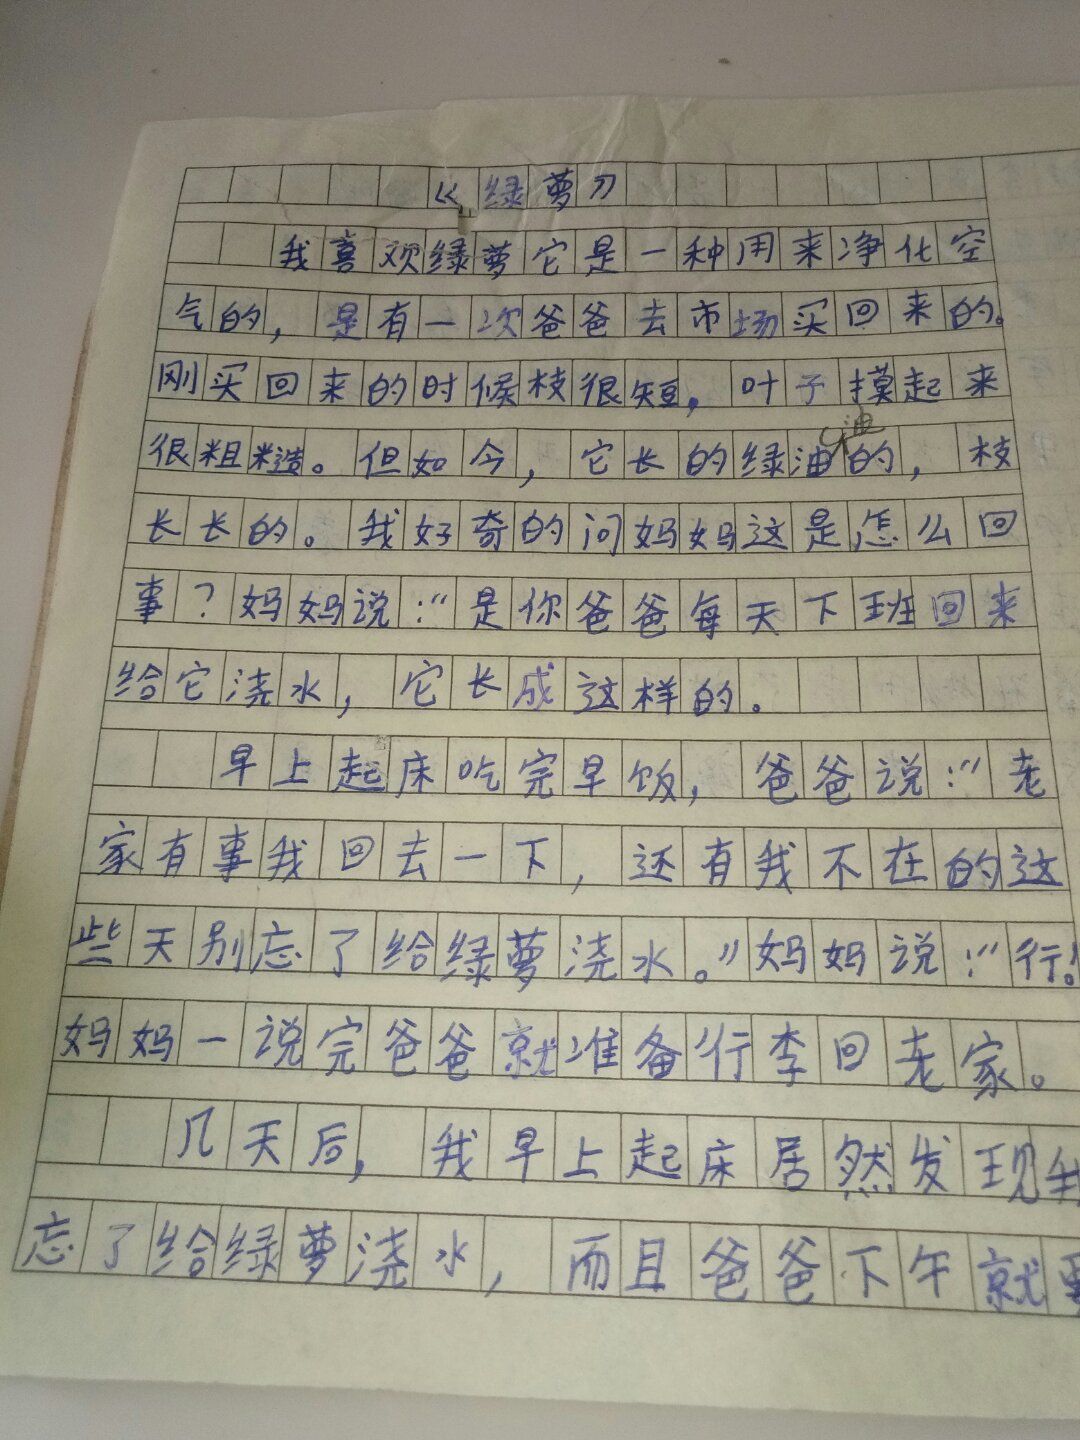 《绿萝》
我喜欢绿萝它是一种用来净化空
气的，是有一次爸爸去市场买回来的。
刚买回来的时候枝很短，叶子摸起来
很粗糙。但如今，它长的绿油油的，枝
长长的。我好奇的问妈妈这是怎么回
事？妈妈说：“是你爸爸每天下班回来
给它浇水，它长成这样的。
早上起床吃完早饭，爸爸说：“老
家有事我回去一下，还有我不在的这
些天别忘了给绿萝浇水。”妈妈说：“行！
妈妈一说完爸爸就准备行李回老家。
几天后，我早上起床居然发现我
忘了给绿萝浇水，而且爸爸下午就要